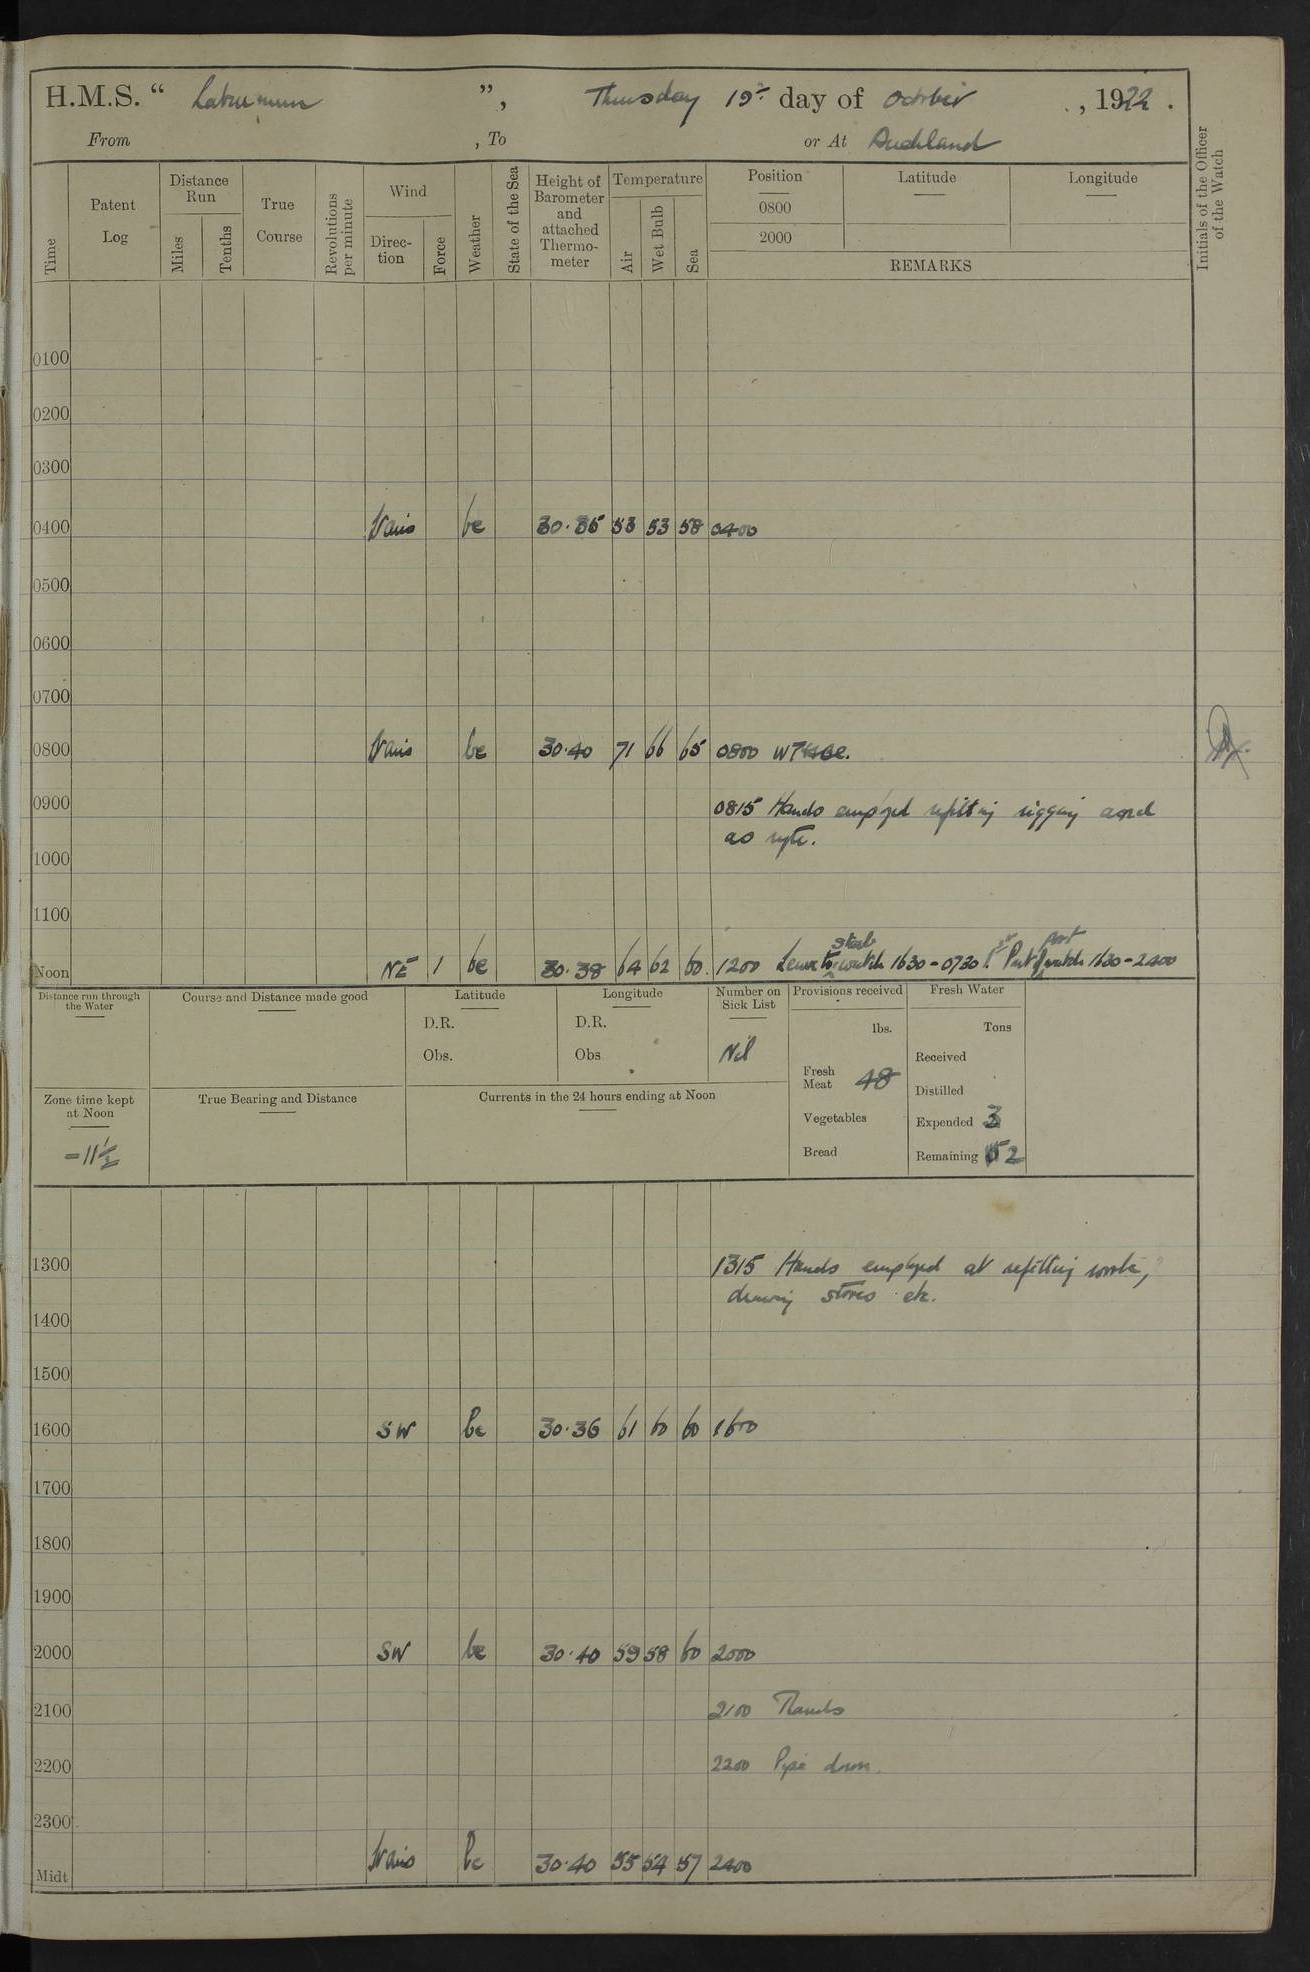 H.M.S. “ Laburnum ”, Thursday 19th day of October, 1922.
From , To or At Auckland
Time
Patent Log
Distance Run
Miles
Tenths
True Course
Revolutions per minute
Wind
Direction
Force
Weather
State of the Sea
Height of Barometer and attached Thermometer
Temperature
Air
Wet Bulb
Sea
Position
0800
2000
Latitude
Longitude
REMARKS
Initials of the Officer of the Watch
0100
0200
0300
0400 Vars bc 30.35 53 53 58 0400
0500
0600
0700
0800 Vars bc 30.40 71 66 65 0800
0900 0815 Hands employed refitting rigging and
as
1000
1100
Noon NE 1 bc 30.38 64 62 60 1200 Leave to stbd watch 1630-0730. Part port watch 1630-2400
Distance run through the Water
Course and Distance made good
Latitude
D.R.
Obs.
Longitude
D.R.
Obs
Number on Sick List
Nil
Provisions received
lbs.
Fresh Meat 48
Vegetables
Bread
Fresh Water
Tons
Received
Distilled
Expended 3
Remaining 52
Zone time kept at Noon
-11½
True Bearing and Distance
Currents in the 24 hours ending at Noon
1300 1315 Hands employed at refitting work,
drawing stores etc.
1400
1500
1600 SW bc 30.36 61 60 60 1600
1700
1800
1900
2000 SW bc 30.40 59 58 60 2000
2100 2100 Rounds
2200 2200 Pipe down.
2300
Midt Vars bc 30.40 55 54 57 2400